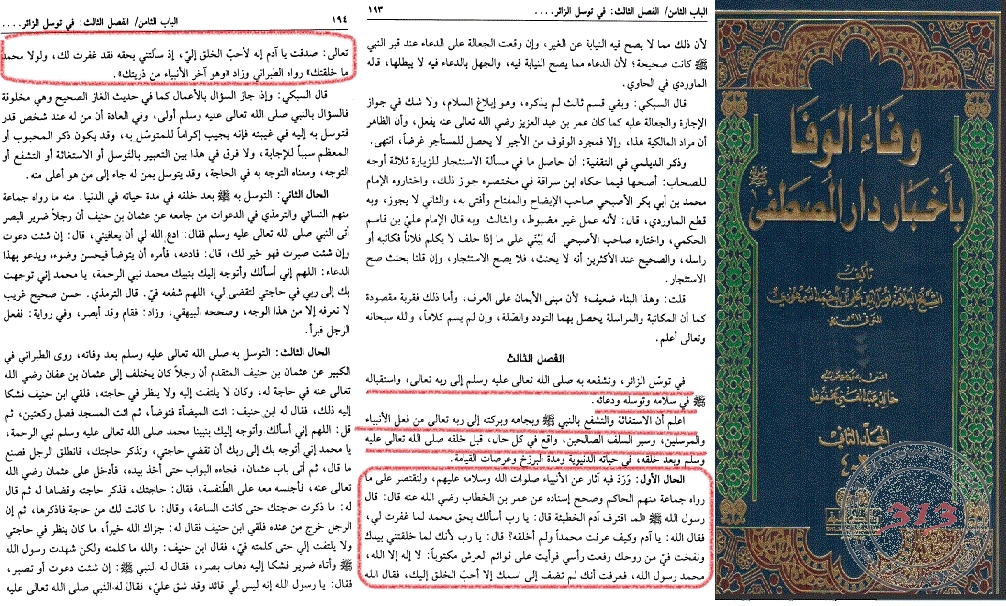 الباب الثامن/ الفصل الثالث: في توسل الزائر....
١١٣
لأن ذلك مما لا يصح فيه النيابة عن الغير، وإن وقعت الجعالة على الدعاء عند قبر النبي
ﷺ كانت صحيحة؛ لأن الدعاء مما يصح النيابة فيه، والجهل بالدعاء فيه لا يبطلها، قاله
الماوردي في الحاوي.
قال السبكي: وبقي قسم ثالث لم يذكره، وهو إبلاغ السلام، ولا شك في جواز
الإجارة والجعالة عليه كما كان عمر بن عبد العزيز رضي الله تعالى عنه يفعل، وأن الظاهر
أن مراد المالكية هذا، وإلا فمجرد الوقوف من الأجير لا يحصل للمستأجر غرضاً، انتهى.
وذكر الديلمي في التقفية: أن حاصل ما في مسألة الاستئجار للزيارة ثلاثة أوجه
للصحاب: أصحها فيما حكاه ابن سراقة في مختصره جوز ذلك، واختاروه الإمام
محمد بن أبي بكر الأصبحي صاحب الإيضاح والمفتاح وأفتى به، والثاني لا يجوز، وبه
قطع الماوردي، قال: لأنه عمل غير مضبوط، والثالث وبه قال الإمام علي بن قاسم
الحكمي، واختاره صاحب الأصبحي أنه يبتي على ما إذا حلف لا يكلم فلاناً فكاتبه أو
راسله، والصحيح عند الأكثرين أنه لا يحنث، فلا يصح الاستئجار، وإن قلنا بحنث صح
الاستئجار.
قلت: وهذا البناء ضعيف؛ لأن مبنى الأيمان على العرف، وأما ذلك فقربة مقصودة
كما أن المكاتبة والمراسلة يحصل بهما التودد والصلة، وإن لم يسم كلاماً، والله سبحانه
وتعالى أعلم.
الفصل الثالث
في توسل الزائر، وتشفعه به صلى الله تعالى عليه وسلم إلى ربه تعالى، واستقباله
ﷺ في سلامه وتوسله ودعائه.
اعلم أن الاستغاثة والتشفع بالنبي ﷺ وبجاهه وبركته إلى ربه تعالى من فعل الأنبياء
والمرسلين، وسير السلف الصالحين، واقع في كل حال، قبل خلقه صلى الله تعالى عليه
وسلم وبعد خلقه، في حياته الدنيوية ومدة البرزخ وعرصات القيامة.
الحال الأول: ورد فيه آثار عن الأنبياء صلوات الله وسلامه عليهم، ولنقتصر على ما
رواه جماعة منهم الحاكم وصحح إسناده عن عمر بن الخطاب رضي الله عنه قال: قال
رسول الله ﷺ «لما اقترف آدم الخطيئة قال: يا رب أسألك بحق محمد لما غفرت لي،
فقال الله: يا آدم وكيف عرفت محمداً ولم أخلقه؟ قال: يا رب لأنك لما خلقتني بيدك
ونفخت فيّ من روحك رفعت رأسي فرأيت على قوائم العرش مكتوباً: لا إله إلا الله،
محمد رسول الله، فعرفت أنك لم تضف إلى اسمك إلا أحبّ الخلق إليك، فقال الله
١٩٤
الباب الثامن/ الفصل الثالث: في توسل الزائر....
تعالى: صدقت يا آدم إنه لأحبّ الخلق إليّ، إذ سألتني بحقه فقد غفرت لك، ولولا محمد
ما خلقتك» رواه الطبراني وزاد «وهو آخر الأنبياء من ذريتك».
قال السبكي: وإذ جاز السؤال بالأعمال كما في حديث الغار الصحيح وهي مخلوقة
فالسؤال بالنبي صلى الله تعالى عليه وسلم أولى، وفي العادة أن من له عند شخص قدر
فتوسل به إليه في غيبته فإنه يجيب إكراماً للمتوسل به، وقد يكون ذكر المحبوب أو
المعظم سبباً للإجابة، ولا فرق في هذا بين التعبير بالتوسل أو الاستغاثة أو التشفع أو
التوجه، ومعناه التوجه به في الحاجة، وقد يتوسل بمن له جاه إلى من هو أعلى منه.
الحال الثاني: التوسل به ﷺ بعد خلقه في مدة حياته في الدنيا. منه ما رواه جماعة
منهم النسائي والترمذي في الدعوات من جامعه عن عثمان بن حنيف أن رجلاً ضرير البصر
أتى النبي صلى الله تعالى عليه وسلم فقال: ادع الله لي أن يعافيني، قال: إن شئت دعوت
وإن شئت صبرت فهو خير لك، قال: فادعه، فأمره أن يتوضأ فيحسن وضوءه ويدعو بهذا
الدعاء: اللهم إني أسألك وأتوجه إليك بنبيك محمد نبي الرحمة، يا محمد إني توجهت
بك إلى ربي في حاجتي لتقضى لي، اللهم شفعه فيّ. قال الترمذي. حسن صحيح غريب
لا نعرفه إلا من هذا الوجه، وصححه البيهقي. وزاد: فقام وقد أبصر، وفي رواية: ففعل
الرجل فبرأ.
الحال الثالث: التوسل به صلى الله تعالى عليه وسلم بعد وفاته، روى الطبراني في
الكبير عن عثمان بن حنيف المتقدم أن رجلاً كان يختلف إلى عثمان بن عفان رضي الله
تعالى عنه في حاجة له، وكان لا يلتفت إليه ولا ينظر في حاجته، فلقي ابن حنيف فشكا
إليه ذلك، فقال له ابن حنيف: ائت الميضأة فتوضأ، ثم ائت المسجد فصل ركعتين، ثم
قل: اللهم إني أسألك وأتوجه إليك بنبينا محمد صلى الله تعالى عليه وسلم نبي الرحمة،
يا محمد إني أتوجه بك إلى ربك أن تقضي حاجتي، وتذكر حاجتك، فانطلق الرجل فصنع
ما قال، ثم أتى باب عثمان، فجاءه البواب حتى أخذ بيده، فأدخل على عثمان رضي الله
تعالى عنه، فأجلسه معه على الطنفسة، فقال: حاجتك، فذكر حاجته وقضاها له ثم قال
له: ما ذكرت حاجتك حتى كانت الساعة، وقال: ما كانت لك من حاجة فاذكرها، ثم إن
الرجل خرج من عنده فلقي ابن حنيف فقال له: جزاك الله خيراً، ما كان ينظر في حاجتي
ولا يلتفت إلي حتى كلمته في، فقال ابن حنيف: والله ما كلمته ولكن شهدت رسول الله
ﷺ وأتاه ضرير فشكا إليه ذهاب بصره، فقال له النبي ﷺ: إن شئت دعوت أو تصبر،
فقال: يا رسول الله إنه ليس لي قائد وقد شق عليّ، فقال له النبي صلى الله تعالى عليه
وفاء الوفا
بأخبار دار المصطفى
ﷺ
تأليف
المجلد الثاني
٣-٤
313